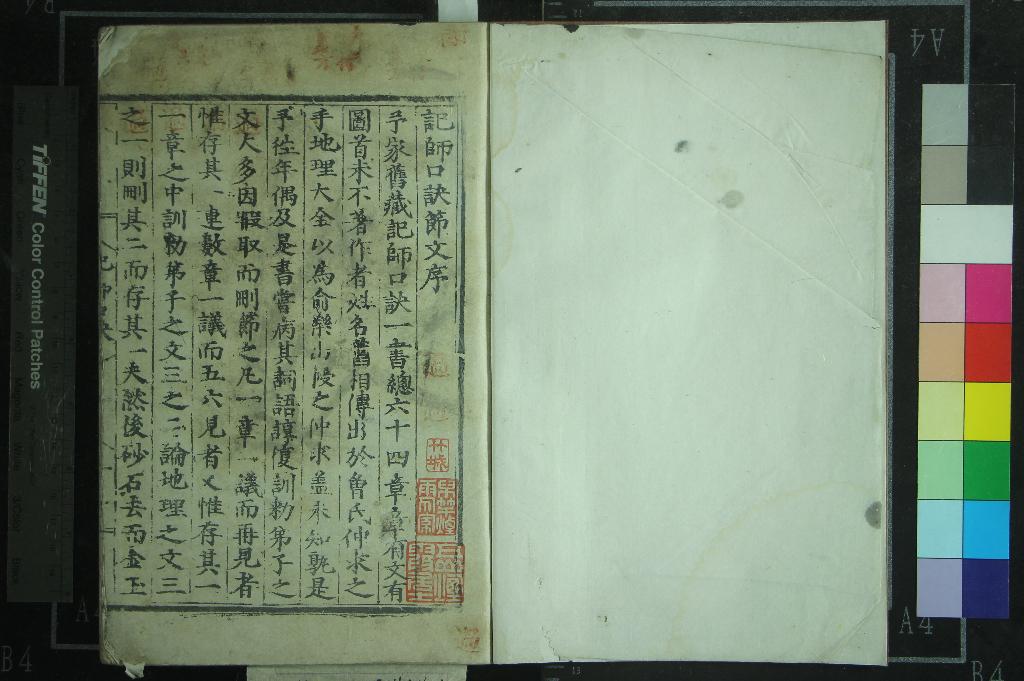 記師口訣節文序
予家舊藏記師口訣一書總六十四章章有文有
圖首末不著作者姓名舊相傳出於曾氏仲求之
手地理大全以為俞樂山授之仲求盖未知孰是
予徃年偶及是書嘗病其詞語諄復訓勑弟子之
文大多因叚取而刪節之凢一章一議而再見者
惟存其一連數章一議而五六見者乂惟存其一
一章之中訓勑弟子之文三之二論地理之文三
之一則刪其二而存其一夫然後砂石去而金玉
竹城
TIFFEN Color Control Patches
A4
A4
B4
B4